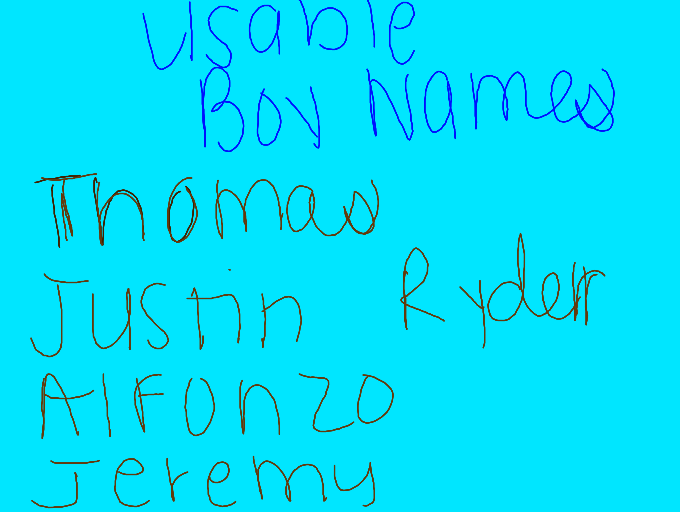 Usable
Boy Names
Thomas
Justin
Ryder
Alfonzo
Jeremy